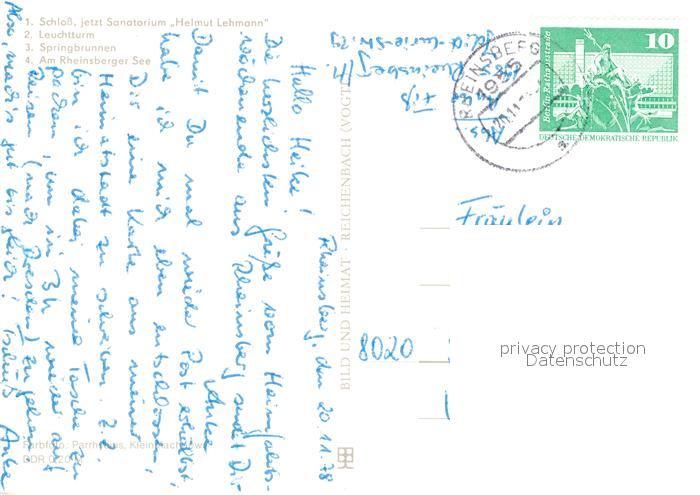 1. Schloß, jetzt Sanatorium „Helmut Lehmann"
2. Leuchtturm
3. Springbrunnen
4. Am Rheinsberger See
Rheinsberg, den 20.11.78
Hallo Heike!
Die herzlichsten Grüße vom Heimfahrts-
wochenende aus Rheinsberg sendet Dir
Anke
Damit Du mal wieder Post erhältst,
habe ich mich eben entschlossen,
Dir eine Karte aus meiner
Heimatstadt zu schreiben. Z. Z.
bin ich dabei, meine Tasche zu
packen, um in 3h wieder auf
Reisen (nach Dresden) zu gehen.
Also, mach's gut bis gleich! Tschüß Anke
Farbfoto: Parrhysius, Kleinmachnow
DDR
BILD UND HEIMAT · REICHENBACH (VOGTL
Abs.:
Rheinsberg/M.
RHEINSBERG
1955
20.11.
10
DEUTSCHE DEMOKRATISCHE REPUBLIK
Berlin-Rathausstraße
Fräulein
8020
privacy protection
Datenschutz